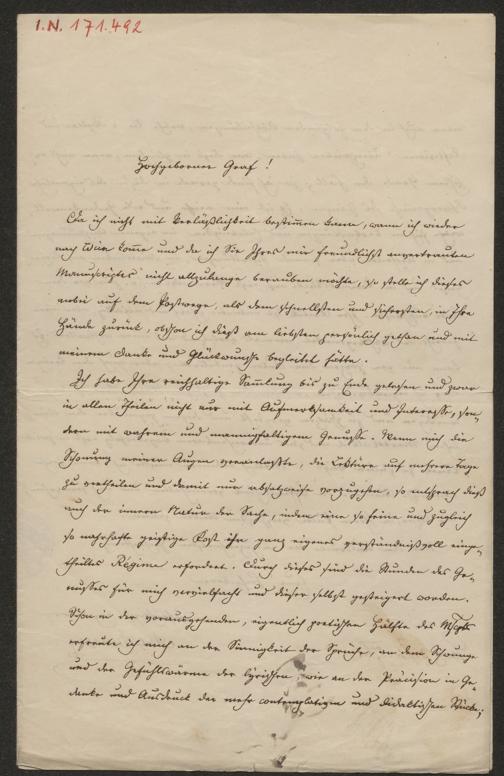 I.N. 171.492
Hochgeborner Graf!
Da ich nicht mit Verläßlichkeit bestimmen kann, wann ich wieder
nach Wien komme und da ich Sie Ihres mir freundlichst anvertrauten
Manuscriptes nicht allzulange berauben möchte, so stelle ich dieses
anbei auf dem Postwege, als dem schnellsten und sichersten, in Ihre
Hände zurück, obschon ich dieß am liebsten persönlich gethan und mit
meinem Danke und Glückwunsche begleitet hätte.
Ich habe Ihre reichhaltige Sammlung bis zu Ende gelesen und zwar
in allen Theilen nicht nur mit Aufmerksamkeit und Interesse, son-
dern mit wahrem und mannigfaltigem Genusse. Wenn mich die
Schonung meiner Augen veranlaßte, die Lektüre auf mehrere Tage
zu vertheilen und damit nur absatzweise vorzugehen, so entsprach dieß
auch der innern Natur der Sache, indem eine so feine und zugleich
so nahrhafte geistige Kost ihr ganz eigenes verständnißvoll einge-
theiltes Régime erfordert. Durch dieses sind die Stunden des Ge-
nusses für mich vervielfacht und dieser selbst gesteigert worden.
Schon in der vorausgehenden, eigentlich poetischen Hälfte des Mscpts
erfreute ich mich an der Sinnigkeit der Sprüche, an dem Schwunge
und der Gefühlswärme der lyrischen, wie an der Präcision in Ge-
danke und Ausdruck der mehr contemplativen und didaktischen Stücke;